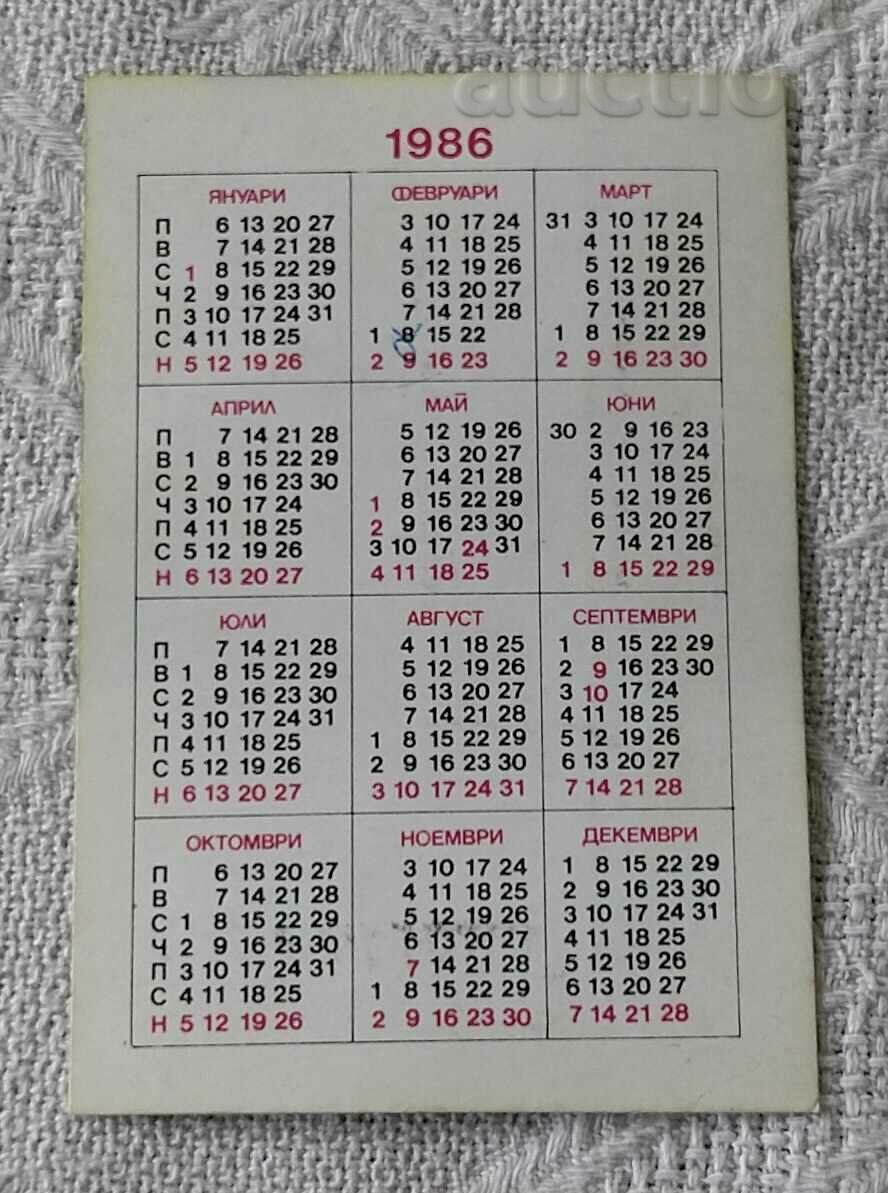 auctio
1986
ЯНУАРИ ФЕВРУАРИ МАРТ
П 6 13 20 27 3 10 17 24 31 3 10 17 24
В 7 14 21 28 4 11 18 25 4 11 18 25
С 1 8 15 22 29 5 12 19 26 5 12 19 26
Ч 2 9 16 23 30 6 13 20 27 6 13 20 27
П 3 10 17 24 31 7 14 21 28 7 14 21 28
С 4 11 18 25 1 8 15 22 1 8 15 22 29
Н 5 12 19 26 2 9 16 23 2 9 16 23 30
АПРИЛ МАЙ ЮНИ
П 7 14 21 28 5 12 19 26 30 2 9 16 23
В 1 8 15 22 29 6 13 20 27 3 10 17 24
С 2 9 16 23 30 7 14 21 28 4 11 18 25
Ч 3 10 17 24 1 8 15 22 29 5 12 19 26
П 4 11 18 25 2 9 16 23 30 6 13 20 27
С 5 12 19 26 3 10 17 24 31 7 14 21 28
Н 6 13 20 27 4 11 18 25 1 8 15 22 29
ЮЛИ АВГУСТ СЕПТЕМВРИ
П 7 14 21 28 4 11 18 25 1 8 15 22 29
В 1 8 15 22 29 5 12 19 26 2 9 16 23 30
С 2 9 16 23 30 6 13 20 27 3 10 17 24
Ч 3 10 17 24 31 7 14 21 28 4 11 18 25
П 4 11 18 25 1 8 15 22 29 5 12 19 26
С 5 12 19 26 2 9 16 23 30 6 13 20 27
Н 6 13 20 27 3 10 17 24 31 7 14 21 28
ОКТОМВРИ НОЕМВРИ ДЕКЕМВРИ
П 6 13 20 27 3 10 17 24 1 8 15 22 29
В 7 14 21 28 4 11 18 25 2 9 16 23 30
С 1 8 15 22 29 5 12 19 26 3 10 17 24 31
Ч 2 9 16 23 30 6 13 20 27 4 11 18 25
П 3 10 17 24 31 7 14 21 28 5 12 19 26
С 4 11 18 25 1 8 15 22 29 6 13 20 27
Н 5 12 19 26 2 9 16 23 30 7 14 21 28